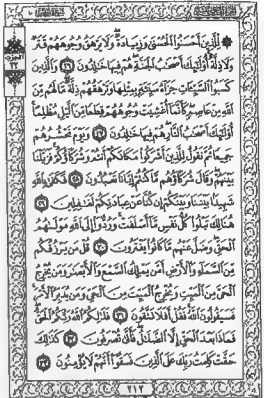 ۞ لِّلَّذِينَ أَحْسَنُوا۟ ٱلْحُسْنَىٰ وَزِيَادَةٌ ۖ وَلَا يَرْهَقُ وُجُوهَهُمْ قَتَرٌ
وَلَا ذِلَّةٌ ۚ أُو۟لَٰٓئِكَ أَصْحَٰبُ ٱلْجَنَّةِ ۖ هُمْ فِيهَا خَٰلِدُونَ ٢٦ وَٱلَّذِينَ
كَسَبُوا۟ ٱلسَّيِّـَٔاتِ جَزَآءُ سَيِّئَةٍۭ بِمِثْلِهَا وَتَرْهَقُهُمْ ذِلَّةٌ ۖ مَّا لَهُم مِّنَ
ٱللَّهِ مِنْ عَاصِمٍ ۖ كَأَنَّمَآ أُغْشِيَتْ وُجُوهُهُمْ قِطَعًا مِّنَ ٱلَّيْلِ مُظْلِمًا ۚ
أُو۟لَٰٓئِكَ أَصْحَٰبُ ٱلنَّارِ ۖ هُمْ فِيهَا خَٰلِدُونَ ٢٧ وَيَوْمَ نَحْشُرُهُمْ
جَمِيعًا ثُمَّ نَقُولُ لِلَّذِينَ أَشْرَكُوا۟ مَكَانَكُمْ أَنتُمْ وَشُرَكَآؤُكُمْ ۚ فَزَيَّلْنَا
بَيْنَهُمْ ۖ وَقَالَ شُرَكَآؤُهُم مَّا كُنتُمْ إِيَّانَا تَعْبُدُونَ ٢٨ فَكَفَىٰ بِٱللَّهِ
شَهِيدًۢا بَيْنَنَا وَبَيْنَكُمْ إِن كُنَّا عَنْ عِبَادَتِكُمْ لَغَٰفِلِينَ ٢٩
هُنَالِكَ تَبْلُوا۟ كُلُّ نَفْسٍ مَّآ أَسْلَفَتْ ۚ وَرُدُّوٓا۟ إِلَى ٱللَّهِ مَوْلَىٰهُمُ
ٱلْحَقِّ ۖ وَضَلَّ عَنْهُم مَّا كَانُوا۟ يَفْتَرُونَ ٣٠ قُلْ مَن يَرْزُقُكُم
مِّنَ ٱلسَّمَآءِ وَٱلْأَرْضِ أَمَّن يَمْلِكُ ٱلسَّمْعَ وَٱلْأَبْصَٰرَ وَمَن يُخْرِجُ
ٱلْحَىَّ مِنَ ٱلْمَيِّتِ وَيُخْرِجُ ٱلْمَيِّتَ مِنَ ٱلْحَىِّ وَمَن يُدَبِّرُ ٱلْأَمْرَ ۚ
فَسَيَقُولُونَ ٱللَّهُ ۚ فَقُلْ أَفَلَا تَتَّقُونَ ٣١ فَذَٰلِكُمُ ٱللَّهُ رَبُّكُمُ ٱلْحَقُّ ۖ
فَمَاذَا بَعْدَ ٱلْحَقِّ إِلَّا ٱلضَّلَٰلُ ۖ فَأَنَّىٰ تُصْرَفُونَ ٣٢ كَذَٰلِكَ
حَقَّتْ كَلِمَتُ رَبِّكَ عَلَى ٱلَّذِينَ فَسَقُوٓا۟ أَنَّهُمْ لَا يُؤْمِنُونَ ٣٣
٢١٢